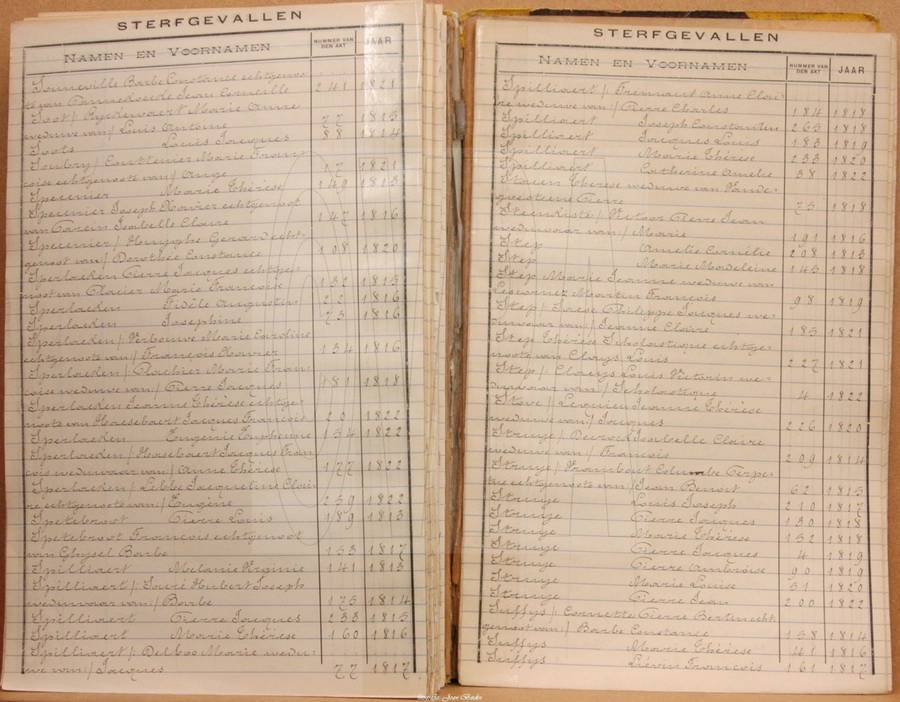 STERFGEVALLEN
NAMEN EN VOORNAMEN NUMMER VAN DEN AKT JAAR
Barbe Constance echtgenoo-
te van Jean Corneille 241 1821
Soot / Marie Anne
weduwe van / Louis Antoine 77 1813
Soots Louis Jacques 88 1814
Soubry / Marie Fran-
çoise echtgenoote van / Ange 17 1821
Specenier Marie Thérèse 149 1813
Specenier Joseph Xavier echtgenoot
van Carein Isabelle Claire 147 1816
Specenier / Huyghe Gerard echt-
genoot van / Dorothée Constance 108 1820
Sperlaeken Pierre Jacques echtge-
noot van Placier Marie Françoise 132 1815
Sperlaeken Fidèle Augustin 22 1816
Sperlaeken Josephine 75 1816
Sperlaeken / Verbouwe Marie Caroline
echtgenoote van / François Xavier 154 1816
Sperlaeken / Marie Fran-
çoise weduwe van / Pierre Jacques 181 1818
Sperlaeken Jeanne Thérèse echtge-
noote van Haesebaert Jacques François 20 1822
Sperlaeken Eugenie Euphemie 154 1822
Sperlaeken / Jacques Fran-
cois weduwaar van / Anne Thérèse 177 1822
Sperlaeken / Libbe Jacqueline Clai-
re echtgenoote van / Eugène 239 1822
Spetebroot Pierre Louis 189 1813
Spetebroot François echtgenoot
van Ghysel Barbe 153 1817
Spilliaert Melanie Virginie 141 1813
Spilliaert / Hubert Joseph
weduwaar van / Barbe 175 1814
Spilliaert Pierre Jacques 233 1815
Spilliaert Marie Thérèse 160 1816
Spilliaert / Marie wedu-
we van / Jacques 77 1817
STERFGEVALLEN
NAMEN EN VOORNAMEN NUMMER VAN DEN AKT JAAR
Spilliaert / Anne Clai-
re weduwe van / Pierre Charles 184 1818
Spilliaert Joseph Constantin 263 1818
Spilliaert Jacques Louis 183 1819
Spilliaert Marie Thérèse 233 1820
Spilliaert Catherine Amelie 38 1822
Thérèse weduwe van Vande-
Pierre 75 1818
Steenkiste / Victoor Pierre Jean
weduwaar van / Marie 191 1816
Step Amelie Cornélie 208 1813
Step Marie Madeleine 143 1818
Step Marie Jeanne weduwe van
Martin François 98 1819
Step / Philippe Jacques we-
duwaar van / Jeanne Claire 185 1821
Step Thérèse Scholastique echtge-
noote van Clays Louis 227 1821
Step / Clays Louis Victorin we-
duwaar van / Scholastique 4 1822
Stove / Lequieu Jeanne Thérèse
weduwe van / Jacques 226 1820
Struye / Isabelle Claire
weduwe van / François 209 1814
Struye / Vrambout Columbe Perpe-
tue echtgenoote van / Jean Benoit 62 1815
Struye Louis Joseph 210 1817
Struye Pierre Jacques 130 1818
Struye Marie Thérèse 152 1818
Struye Pierre Jacques 4 1819
Struye Pierre Ambroise 90 1819
Struye Marie Louise 31 1820
Struye Pierre Jean 200 1822
Suffys / Cornette Pierre Bertin echt-
genoot van / Barbe Constance 138 1814
Suffys Marie Thérèse 41 1816
Suffys Liévin François 161 1817